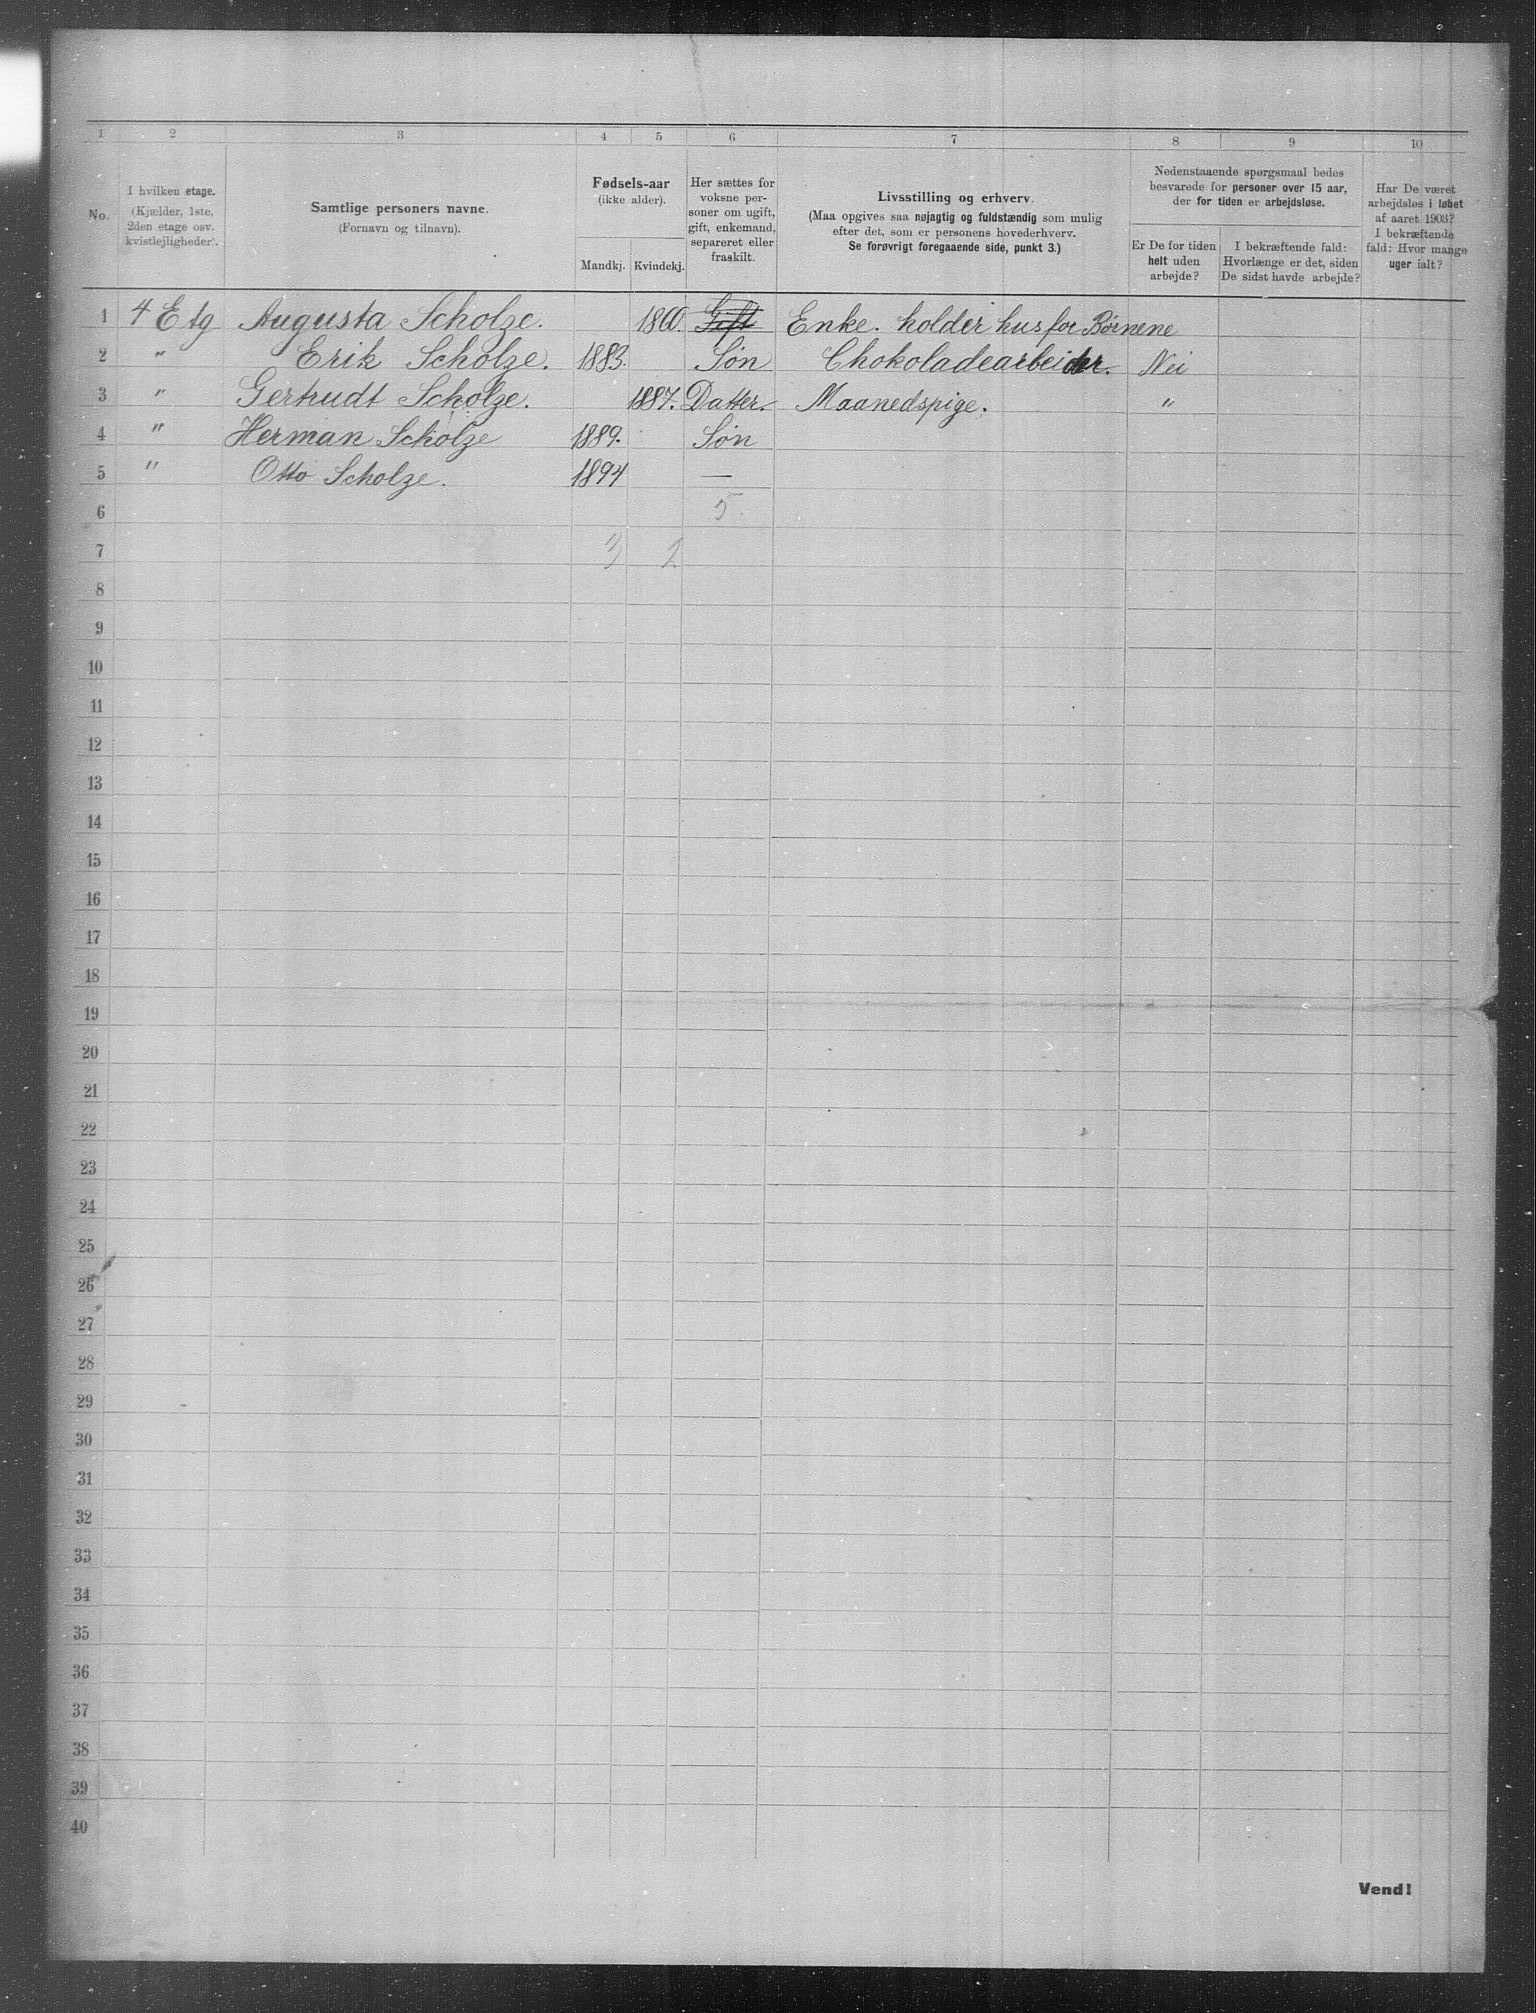 1 2 3 4 5 6 7 8 9 10
No.
I hvilken etage.
(Kjælder, 1ste,
2den etage osv.
kvistlejligheder).
Samtlige personers navne.
(Fornavn og tilnavn).
Fødsels-aar
(ikke alder).
Mandkj. Kvindekj.
Her sættes for
voksne per-
soner om ugift,
gift, enkemand,
separeret eller
fraskilt.
Livsstilling og erhverv.
(Maa opgives saa nøjagtig og fuldstændig som mulig
efter det, som er personens hovederhverv.
Se forøvrigt foregaaende side, punkt 3.)
Nedenstaaende spørgsmaal bedes
besvarede for personer over 15 aar,
der for tiden er arbejdsløse.
Er De for tiden
helt uden
arbejde?
I bekræftende fald:
Hvorlænge er det, siden
De sidst havde arbejde?
Har De været
arbejdsløs i løbet
af aaret 1903?
I bekræftende
fald: Hvor mange
uger ialt?
1 4 Etg Augusta Scholze. 1860. Gift Enke. holder hus for Børnene
2 " Erik Scholze. 1883. Søn Chokoladearbeider. Nei
3 " Gertrudt Scholze. 1887. Datter. Maanedspige. "
4 " Herman Scholze 1889. Søn
5 " Otto Scholze. 1894 —
6 5
7 3 2
8
9
10
11
12
13
14
15
16
17
18
19
20
21
22
23
24
25
26
27
28
29
30
31
32
33
34
35
36
37
38
39
40
Vend!